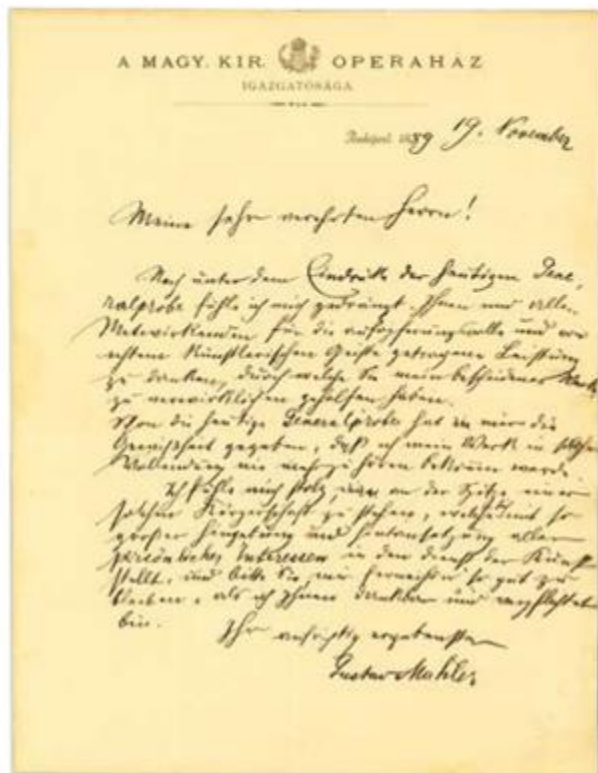 A MAGY. KIR. OPERAHÁZ
IGAZGATÓSÁGA
Budapest 1889 19. November
Meine sehr verehrten Herrn!
Noch unter dem Eindrucke der heutigen Gene-
ralprobe fühle ich mich gedrängt, Ihnen und allen
Mitwirkenden für die aufopferungsvolle und von
echtem künstlerischen Geiste getragene Leistung
zu danken, durch welche Sie mein bescheidenes Werk
zu verwirklichen geholfen haben.
Schon die heutige Generalprobe hat in mir die
Gewissheit gegeben, daß ich mein Werk in solcher
Vollendung nie mehr zu hören bekommen werde.
Ich fühle mich stolz, an der Spitze einer
solchen Körperschaft zu stehen, welche mit so
großer Hingebung und Hintansetzung aller
persönlichen Interessen in den Dienst der Kunst
stellt, und bitte Sie, mir fernerhin so gut zu
bleiben, als ich Ihnen dankbar und verpflichtet
bin.
Ihr aufrichtig ergebenster
Gustav Mahler